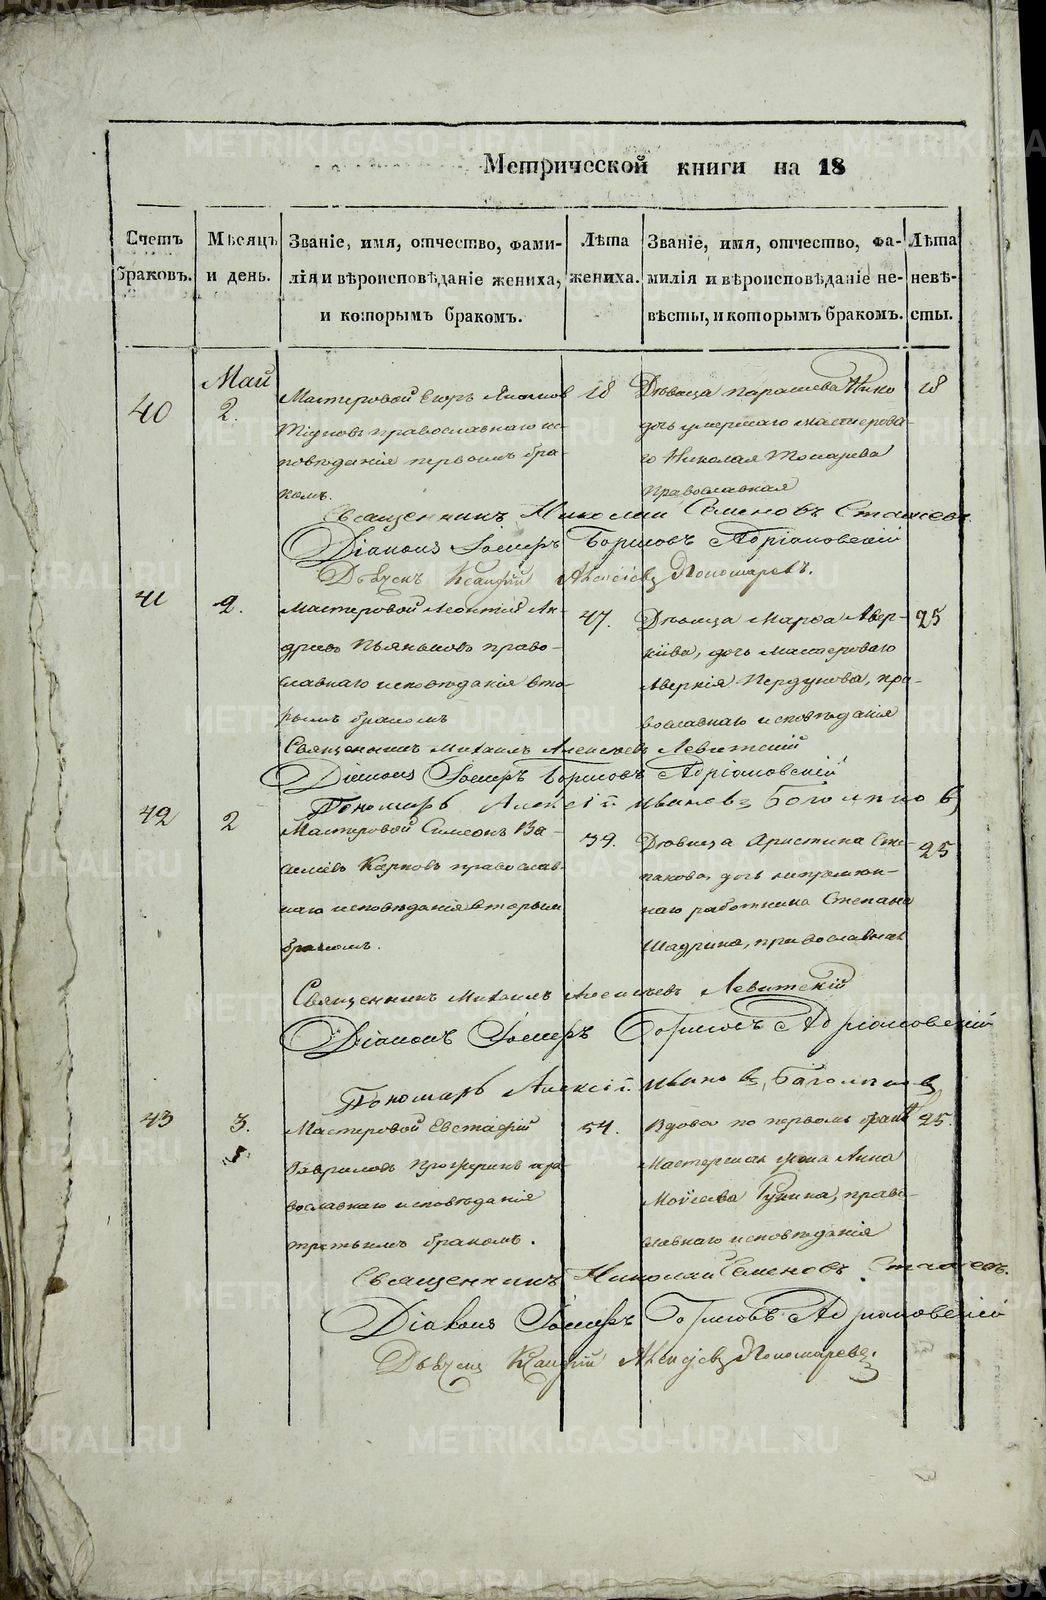 Метрической книги на 18
Счетъ браковъ.
Мѣсяцъ и день.
Званіе, имя, отчество, фамилія и вѣроисповѣданіе жениха, и которымъ бракомъ.
Лѣта жениха.
Званіе, имя, отчество, фамилія и вѣроисповѣданіе невѣсты, и которымъ бракомъ.
Лѣта невѣсты.
Май
40
2.
Мастеровой Егоръ
православнаго ис-
повѣданія первымъ бра-
комъ.
18
Дѣвица Парасковья Нико
дочь умершаго мастерова-
го Николая Токарева
православная
18
Священникъ Николай Семеновъ
Діаконъ Іосифъ Борисовъ Адріановскій
Дьячекъ Ксанфій Алексіевъ Пономаревъ.
41
2.
Мастеровой Леонтій Ан-
дреевъ Пьянковъ право-
славнаго исповѣданія вто-
рымъ бракомъ
47.
Дѣвица Марфа Авер-
кіева, дочь мастероваго
Аверкія Пердунова, пра-
вославнаго исповѣданія
25
Священникъ Михаилъ Алексѣевъ Левитскій
Діаконъ Іосифъ Борисовъ Адріановскій
Пономарь Алексій Ивановъ Боголѣповъ
42
2
Мастеровой Симеонъ Ва-
силіевъ Карповъ православ-
наго исповѣданія вторымъ
бракомъ.
39.
Дѣвица Христина Сте-
панова, дочь непремѣн-
наго работника Степана
Шадрина, православная
25
Священникъ Михаилъ Алексѣевъ Левитскій
Діаконъ Іосифъ Борисовъ Адріановскій
Пономарь Алексій Ивановъ Боголѣповъ
43
3.
Мастеровой Евстафій
Гавриловъ пра-
вославнаго исповѣданія
третьимъ бракомъ.
54.
Вдова по первомъ бракѣ
Мастерская жена Анна
Моисеева православнаго исповѣданія
25.
Священникъ Николай Семеновъ
Діаконъ Іосифъ Борисовъ Адріановскій
Дьячекъ Ксанфій Алексіевъ Пономаревъ.
METRIKI.GASO-URAL.RU